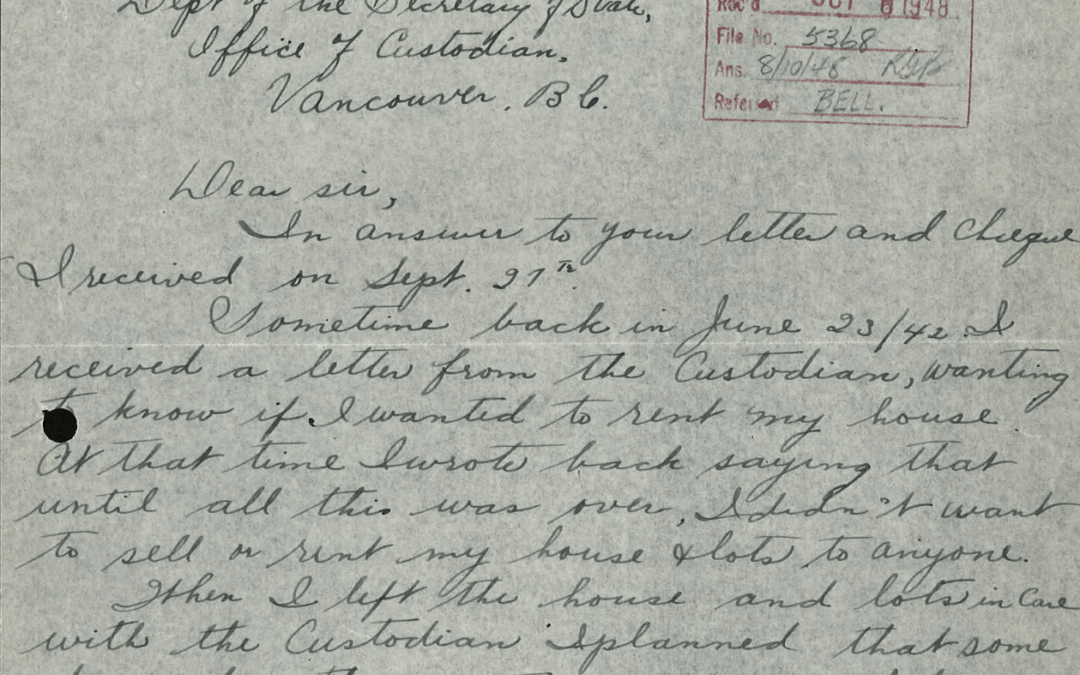 Dept of the Secretary of State,
Office of Custodian.
Vancouver. B C.
Rec'd OCT 6 1948
File No. 5368
Ans. 8/10/48
Referred BELL.
Dear sir,
In answer to your letter and Cheque
I received on Sept. 27th.
Sometime back in June 23/42 I
received a letter from the Custodian, wanting
to know if I wanted to rent my house.
At that time I wrote back saying that
until all this was over, I didn't want
to sell or rent my house & lots to anyone.
When I left the house and lots in Care
with the Custodian I planned that some